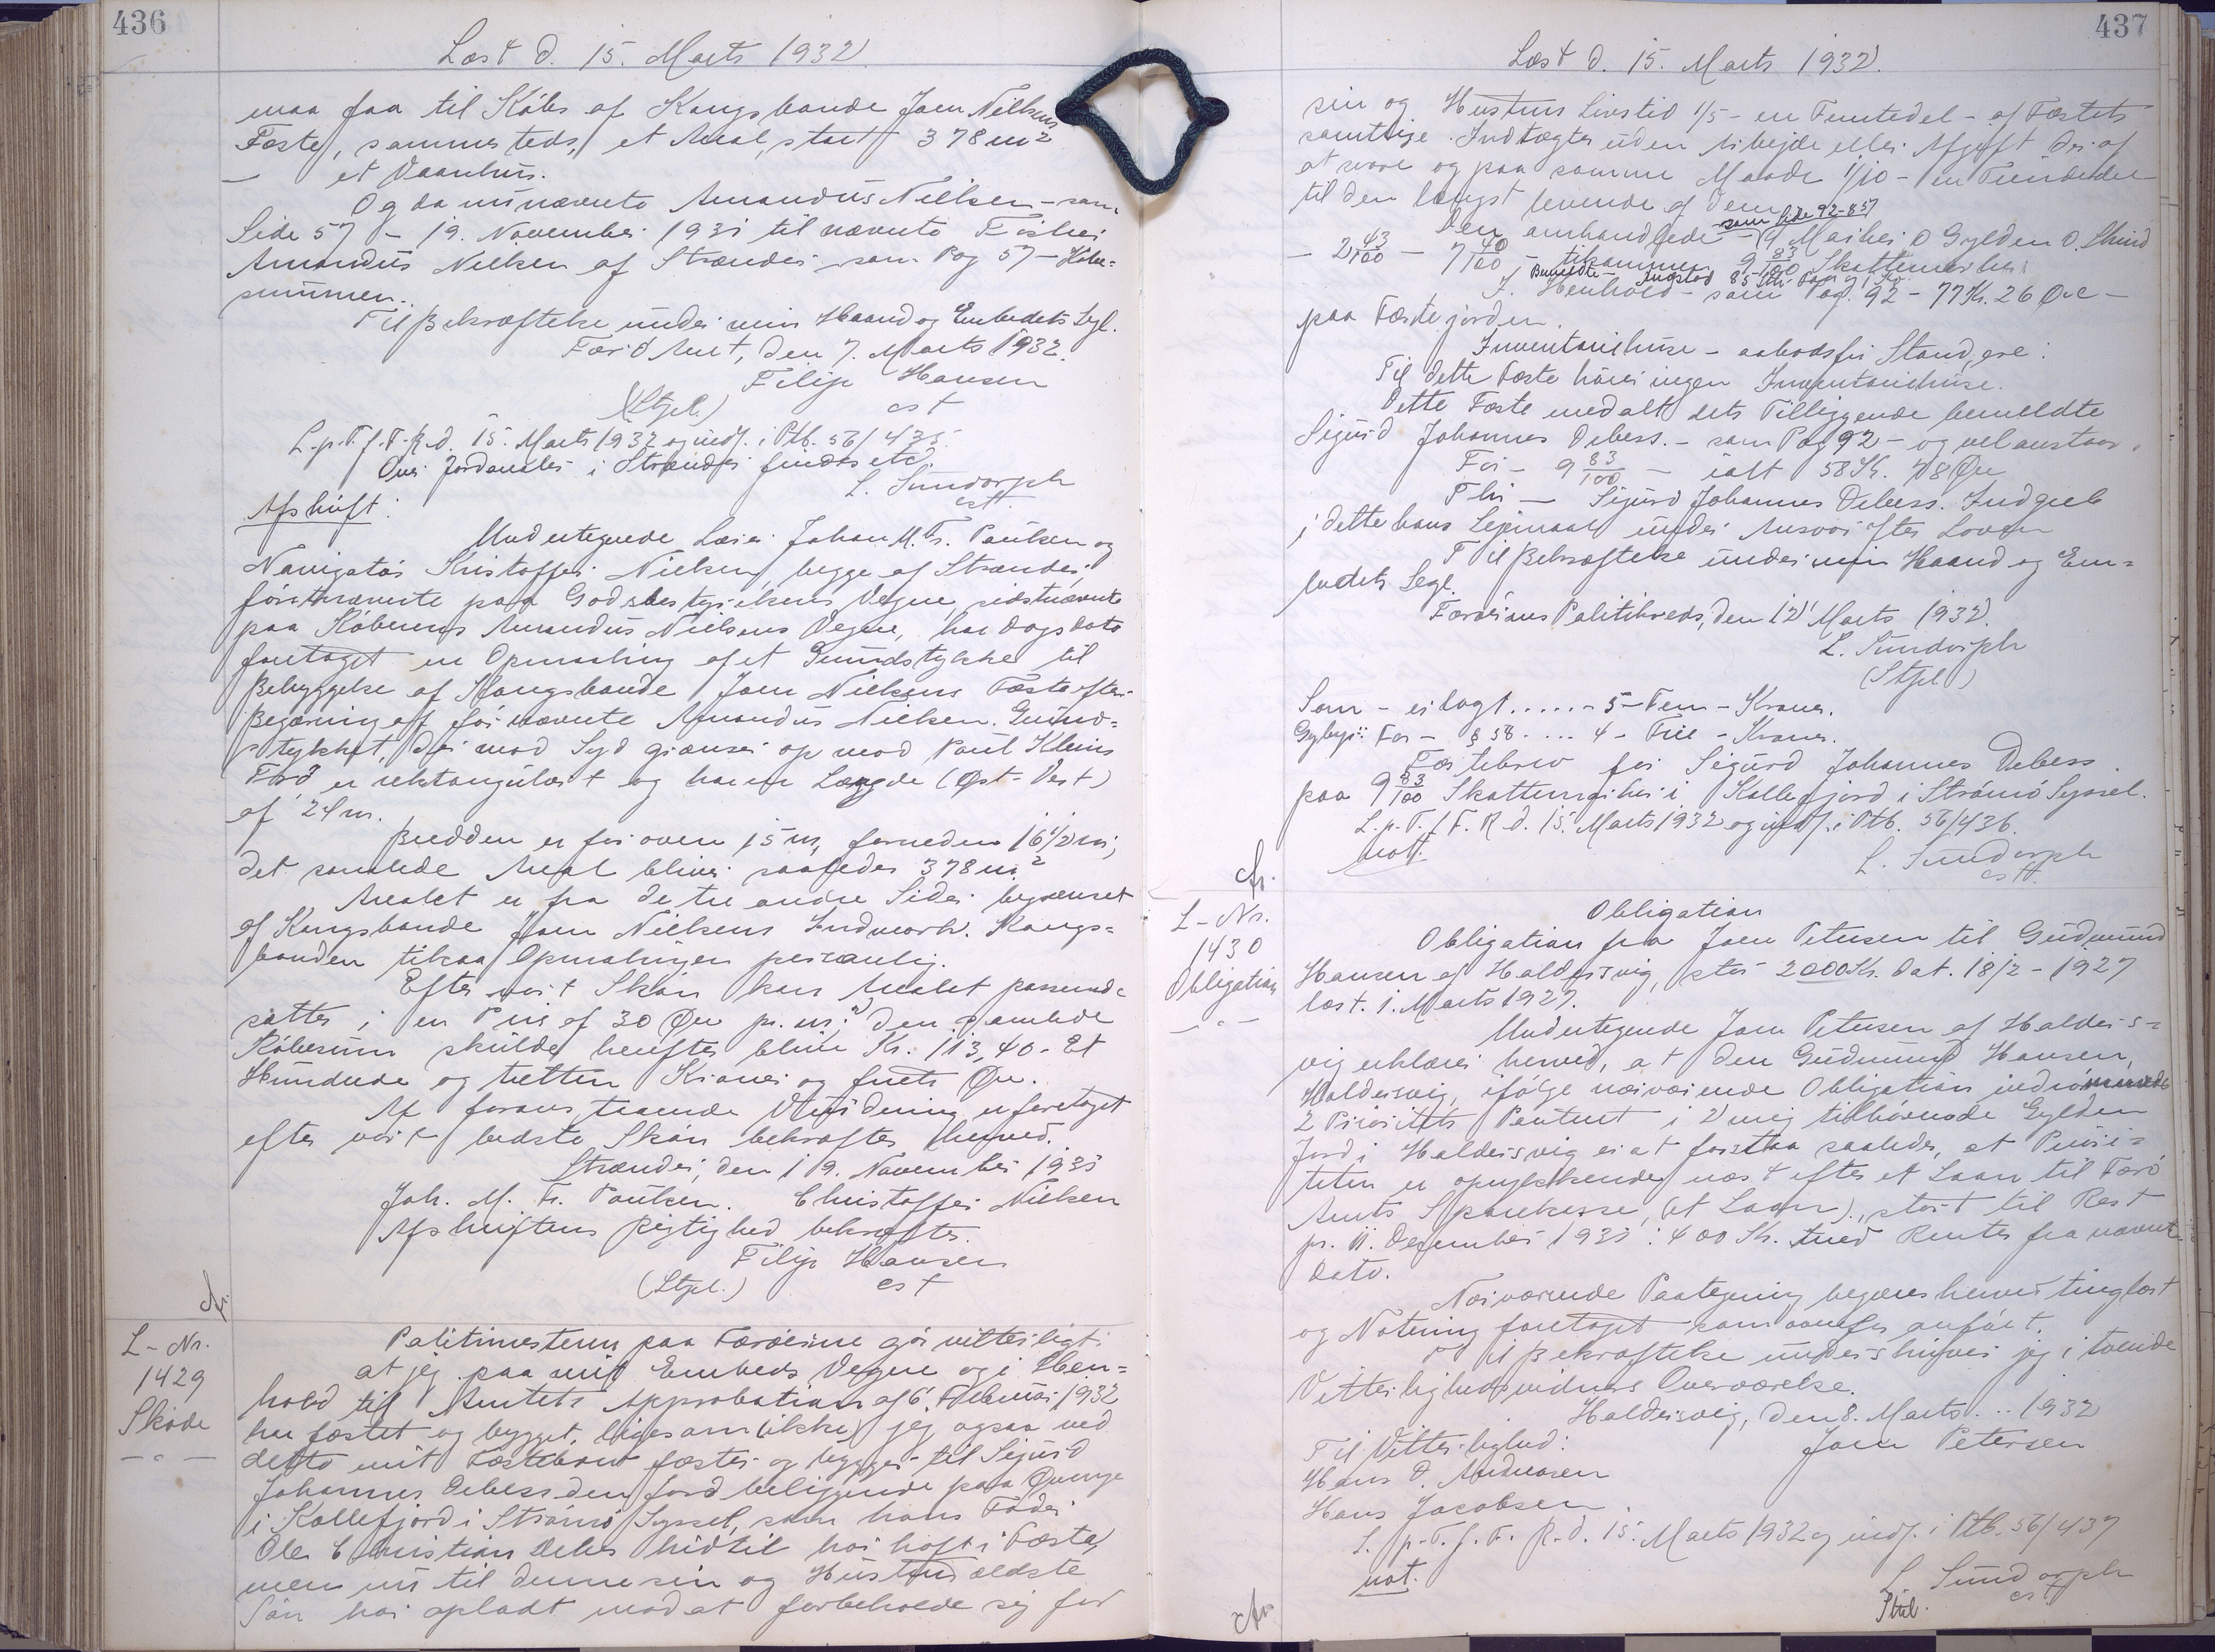 436
Læst d. 15. Marts 1932.
maa faa til Købs af Kongsbonde Joen Nielsens
Fæste, sammesteds, et Areal, stort 378 m²
— et Vaanhus.
Og da nu nævnte Amandus Nielsen - som
Side 57 - 19. November 1931 til nævnte Fisker
Amandus Nielsen af Strænder som Pag 57 - Købe-
summen.
Til Bekræftelse under min Haand og Embedets Segl.
Færø Amt, den 7. Marts 1932.
Filip Hansen
(Stpl.) cst
L. p. T. f. F. R. d. 15. Marts 1932 og indf. i Ptb. 56/435.
Over Jordarealer i Strænder findes etc.
L. Sundorph
cst.
Afskrift:
Undertegnede Lærer Johan M. Fr. Poulsen og
Navigatør Kristoffer Nielsen, begge af Strænder,
førstnævnte paa Godsbestyrelsens Vegne sidstnævnte
paa Køberens Amandus Nielsens Vegne, har Dags Dato
foretaget en Opmaaling af et Grundstykke til
Bebyggelse af Kongsbonde Joen Nielsens Fæste efter
Begæring af før nævnte Amandus Nielsen. Grund-
stykket, der mod Syd grænser op mod Poul Kleins
Trö er rektangulært og har en Længde (Øst-Vest)
af 24 m.
Bredden er for oven 15 m, forneden 16 1/2 m;
det samlede Areal bliver saaledes 378 m²
Arealet er fra de tre andre Sider begrænset
af Kongsbonde Joen Nielsens Indmark. Kongs-
bonden tilsaa Opmalingen personlig.
Efter vort Skøn kan Arealet passende
sættes i en Pris af 30 Øre pr. m²; den samlede
Købesum skulde herefter blive Kr. 113,40 - Et
Hundrede og tretten Kroner og firti Øre.
At foranstaaende Vurdering er foretaget
efter vort bedste Skøn bekræftes herved.
Strænder, den 19. November 1931
Joh. M. Fr. Poulsen. Christoffer Nielsen
Afskriftens Rigtighed bekræftes.
Filip Hansen
(Stpl.) cst
L-Nr.
1429
Skøde
— " —
Politimesteren paa Færøerne gør vitterligt:
at jeg paa mit Embeds Vegne og i Hen-
hold til Amtets Approbation af 6. Februar 1932
har fæstet og bygget, ligesom (ikke) jeg ogsaa ved
dette mit Fæstebrev fæster og bygger til Sigurd
Johannes Debess den Jord beliggende paa Qvenge
i Kollefjord i Strømø Syssel, som hans Fader
Ole Christian Debes hidtil har haft i Fæste,
men nu til denne sin og Hustrus ældste
Søn har opladt mod at forbeholde sig for
437
Læst d. 15. Marts 1932.
sin og Hustrus Livstid 1/5 - en Femtedel - af Fæstets
samtlige Indtægter uden Arbejde eller Afgift deraf
at svare og paa samme Maade 1/10 - en Tiendedel
til den længst levende af dem.
som Side 92-857
Den omhandlede - 19 Marker 0 Gylden 0. Skind
- 2 43/100 - 7 40/100 - tilsammen 9 83/100 Skattemarker
I Henhold - som Pag. 92 - 77 Kr. 26 Øre -
paa Fæstejorden.
Inventariehuse - aabodsfri Stand, ere:
Til dette Fæste hører ingen Inventariehuse.
Dette Fæste med alt dets Tilliggende bemeldte
Sigurd Johannes Debess. - som Pag 92 - og vel anstaar.
For - 9 83/100 - ialt 58 Kr. 78 Øre
Thi - Sigurd Johannes Debess. Indgreb
i dette hans Lejemaal under Ansvar efter Loven
Til Bekræftelse under min Haand og Em-
bedets Segl.
Færøernes Politikreds, den 12' Marts 1932.
L. Sundorph
(Stpl)
Som - erlagt ..... - 5 - Fem - Kroner.
Gebyr: For - § 58 .... 4 - Fire - Kroner.
Fæstebrev for Sigurd Johannes Debess
paa 9 83/100 Skattemarker i Kollefjord i Strømø Syssel.
L. p. T. f F. R d. 15. Marts 1932 og indf. i Ptb. 56/436.
not.
L. Sundorph
cst.
L-Nr.
1430
Obligation
— " —
Obligation
Obligation fra Joen Petersen til Gudmund
Hansen af Haldersvig, stor 2000 Kr. dat. 18/2 - 1927
læst. 1. Marts 1927.
Undertegnede Joen Petersen af Halders-
vig erklærer herved, at den Gudmund Hansen,
Haldersvig, ifølge nærværende Obligation indrømmede
2 Prioritets Panteret i 2 mig tilhørende Gylden
Jord i Haldersvig er at forstaa saaledes, at Priori-
teten er oprykkende næst efter et Laan til Færø
Amts Sparekasse, (et Laan), stort til Rest
pr. 11. December 1931: 400 Kr. med Renter fra nævnte
Dato.
Nærværende Paategning begæres herved tinglæst
og Notering foretaget som ovenfor anført.
Til Bekræftelse underskriver jeg i tvende
Vitterlighedsvidners Overværelse.
Haldersvig, den 8. Marts .. 1932
Til Vitterlighed: Joen Petersen
Hans D. Andreasen
Hans Jacobsen.
L. p. T. f. F. R. d. 15. Marts 1932 og indf. i Ptb. 56/437
not.
L. Sundorph
cst
Stpl.